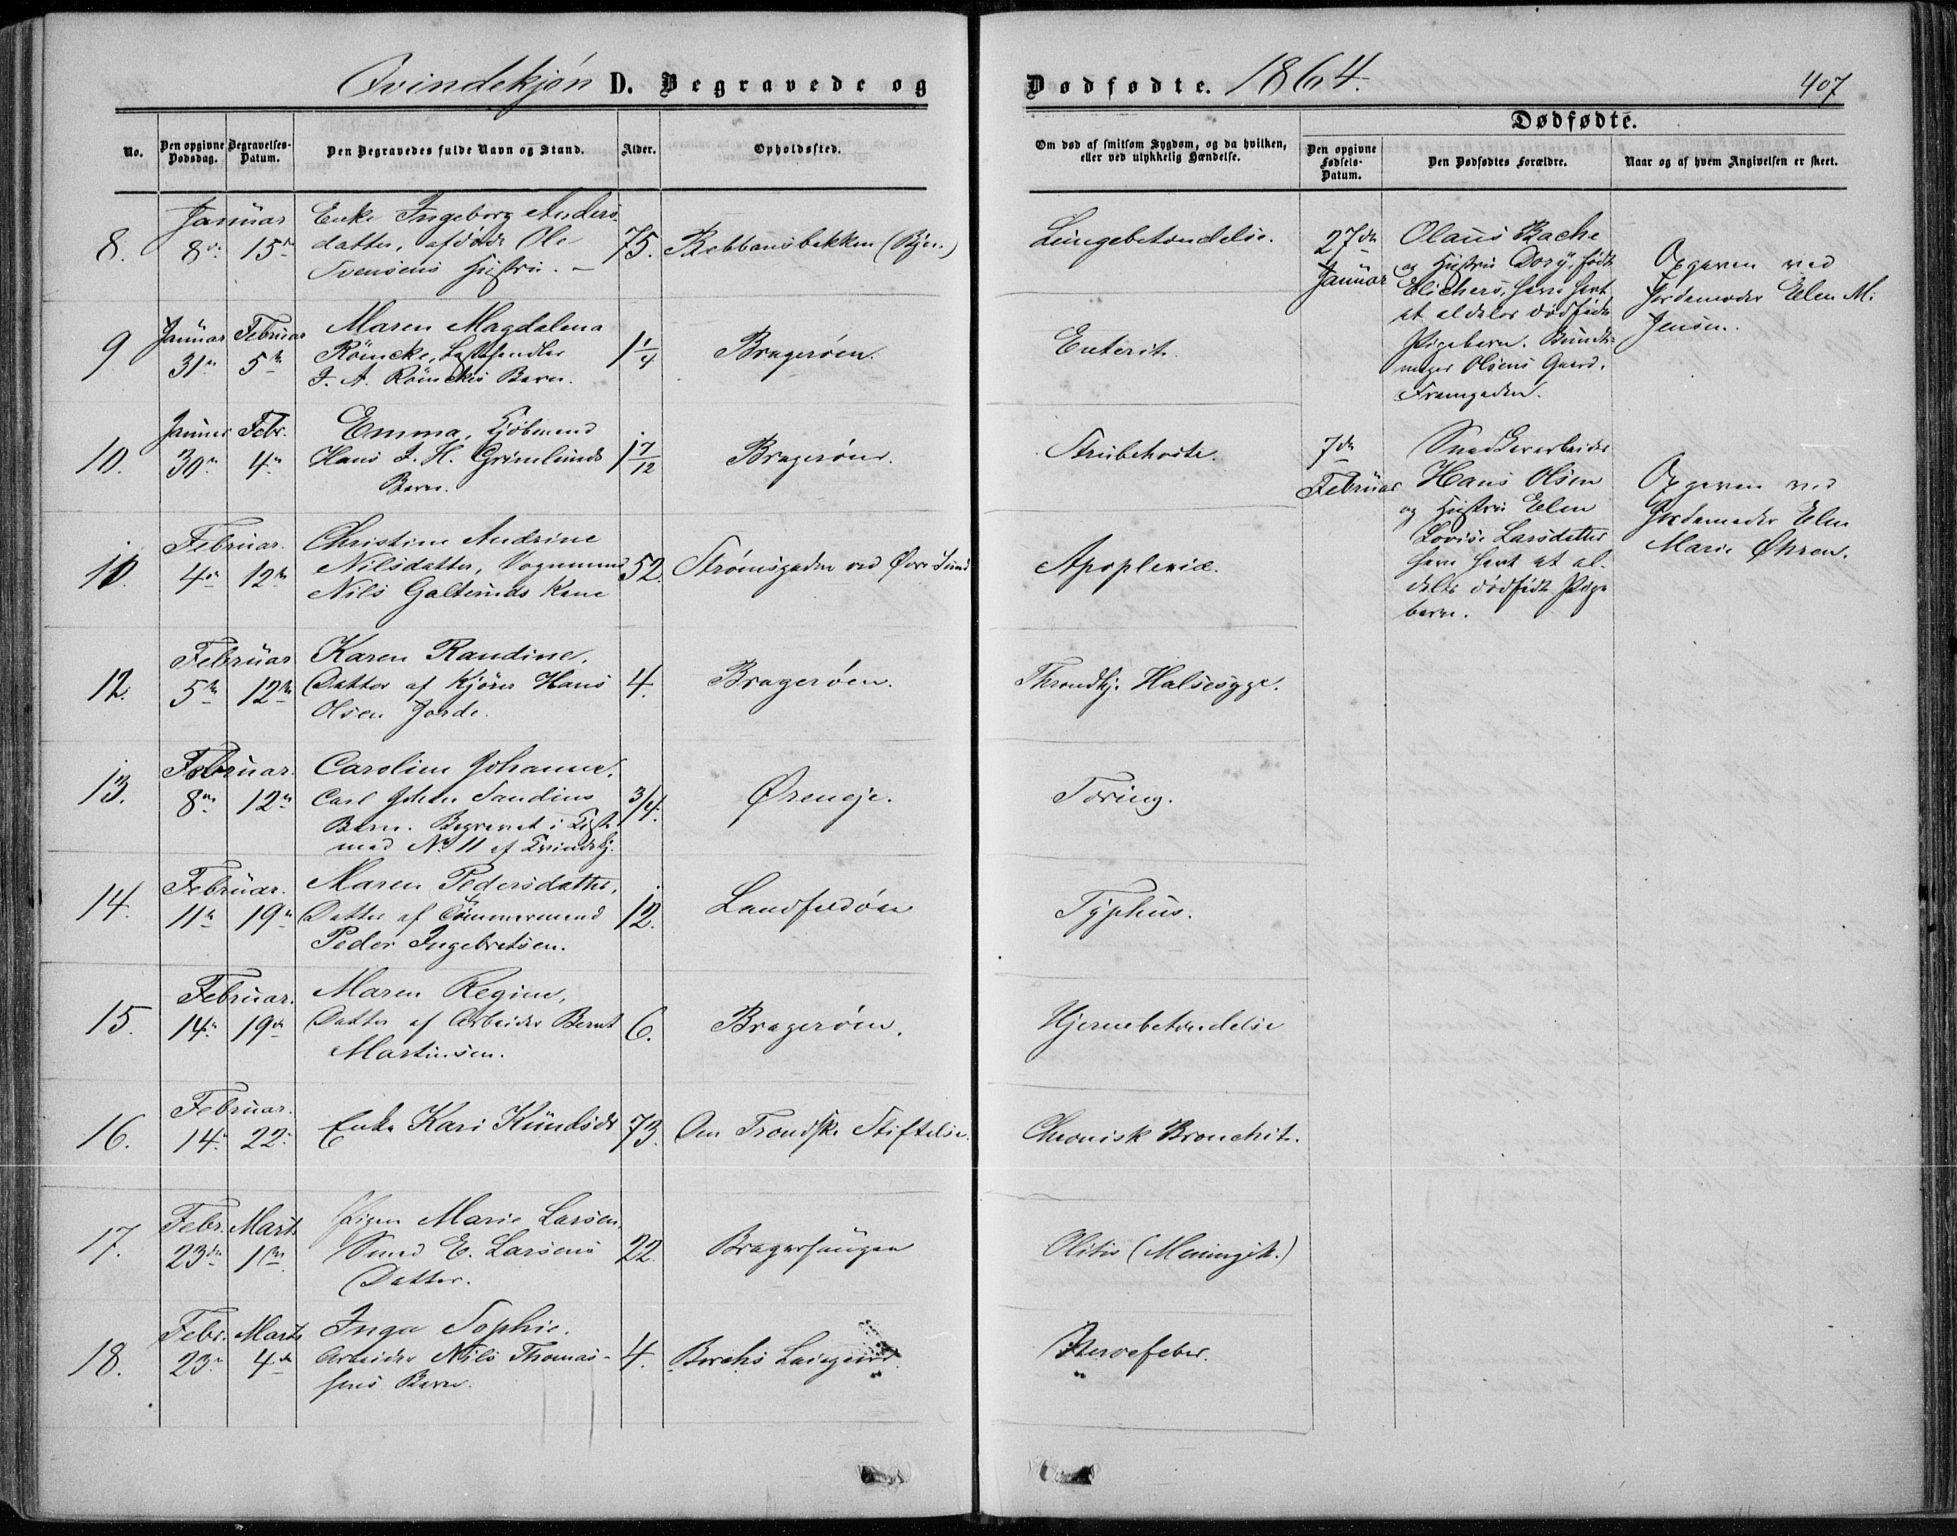 Qvindekjøn D. Begravede og
Dødfødte. 1864.
407
No.
Den opgivne Dødsdag.
Begravelses-Datum.
Den Begravedes fulde Navn og Stand.
Alder.
Opholdssted.
Om død af smitsom Sygdom, og da hvilken,
eller ved ulykkelig Hændelse.
Dødfødte.
Den opgivne Fødsels-Datum.
Den Dødfødtes Forældre.
Naar og af hvem Angivelsen er skeet.
Januar
8. 8de 15de
Enke Ingeborg Anders-
datter, afdøde Ole
Svensens Hustru. —
75. (Byen.)
Lungebetændelse.
9 Januar 31te Februar 5te
Maren Magdalena
Röincke,
J. A. Röinckes Barn.
1 1/4
Bragerøen.
Enterit.
10. Januar 30te Febr. 4de
Emma, Kjøbmand
Hans J. H. Grimlunds
Barn.
1 7/12
Bragerøen.
Strubehoste.
11. Februar. 4de 12te
Christine Andrine
Nilsdatter, Vognmand
Nils Galteruds Kone
52. Strømsgaden ved Øvre Sund
Apoplexie.
12. Februar 5te 12te
Karen Randine,
Datter af Kjører Hans
Olsen Jorde.
4.
Bragerøen.
Throndhj. Halsesyge.
13. Februar. 8de 12te
Caroline Johanne.
Carl Johan Sandins
Barn. Begravet i Kiste
med No 11 af Qvindekj.
3/4.
Øreneje.
Tæring.
14. Februar. 11te 19de
Maren Pedersdatter,
Datter af Tömmermand
Peder Ingebretsen.
12.
Landfaldøen
Typhus.
15. Februar. 14de 19de
Maren Regine,
Datter af Arbeider Bernt
Martinsen.
6.
Bragerøen.
Hjernebetændelse
16. Februar. 14de 22de
Enke Kari Knudsdt
73. Den Trondske Stiftelse.
Chronisk Bronchit.
17. Febr. 23de Marts 1ste
Pigen Marie Larsen,
Smed E. Larsens
Datter.
22.
Bragerhaugen
Otitis (Meningit.)
18. Febr. 23de Marts 4de
Inga Sophie.
Arbeider Nils Thomas-
sens Barn.
4.
Nervefeber.
27de
Januar
Olaus Bache
og Hustru født
have havt
et aldeles dødfødt
Pigebarn.
Olsens Gaard.
Opgiven ved
Jordemoder Elen M.
Jensen.
7de
Februar
Snedkerarbeider
Hans Olsen
og Hustru Elen
Lovise Larsdatter
have havt et al-
deles dødfødt Pige-
barn.
Opgiven ved
Jordemoder Elen
Marie Øhren.